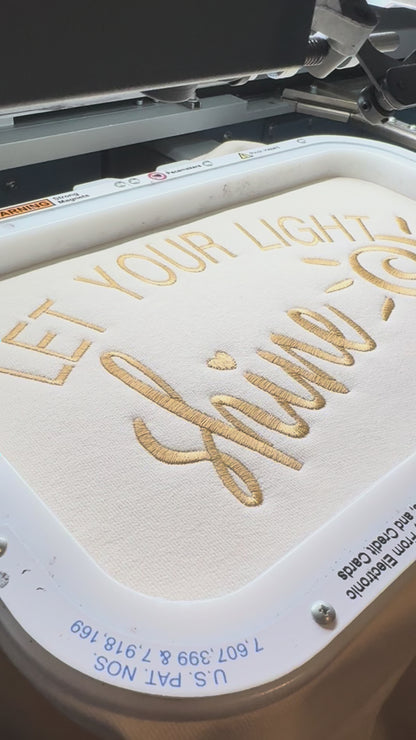 WARNING
Strong
Magnets
Pacemakers
LET YOUR LIGHT
Shine
From Electronic
and Credit Cards
U.S. PAT. NOS.
7,607,399 & 7,918,169